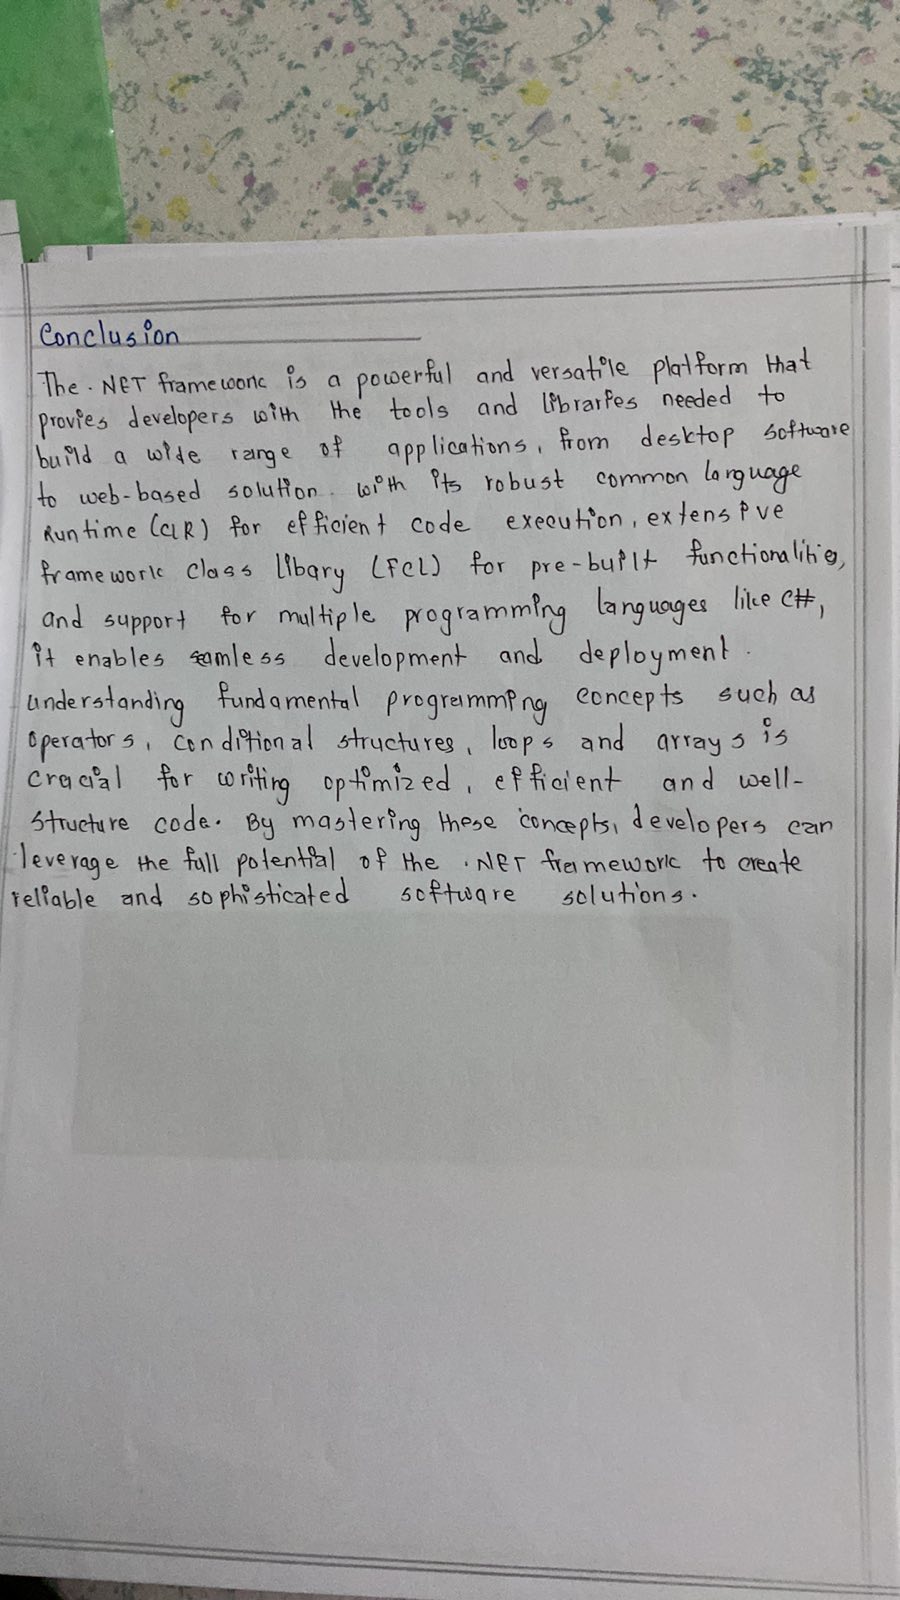 Conclusion
The .NET framework is a powerful and versatile platform that
provies developers with the tools and libraries needed to
build a wide range of applications, from desktop software
to web-based solution. with its robust common language
Runtime (CLR) for efficient code execution, extensive
framework class libary (FCL) for pre-built functionalities,
and support for multiple programming languages like C#,
it enables seamless development and deployment.
understanding fundamental programming concepts such as
operators, conditional structures, loops and arrays is
cracial for writing optimized, efficient and well-
structure code. By mastering these concepts, developers can
leverage the full potential of the .NET framework to create
reliable and sophisticated software solutions.